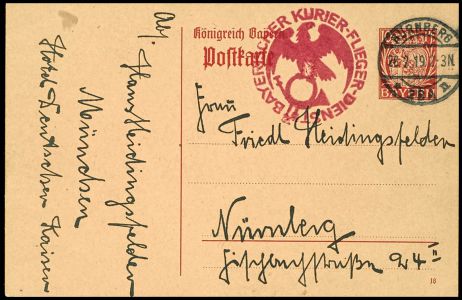 Abs.
Hans Heidingsfelder
München
Hotel Deutscher Kaiser
Königreich Bayern
Postkarte
BAYERISCHER KURIER-FLIEGER-DIENST
NÜRNBERG
2-3N.
BAYERN
Frau
Friedl Heidingsfelder
Nürnberg
24 II
16